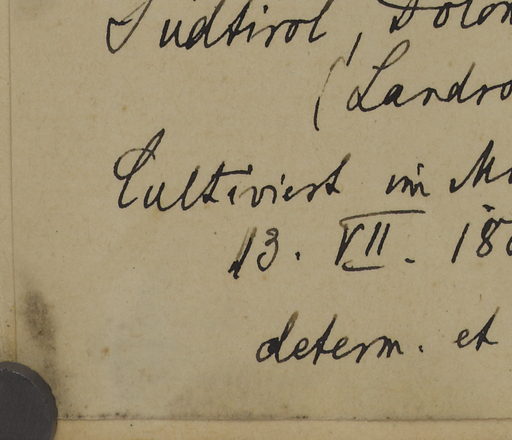 Südtirol, Dolom
(Landro
Cultiviert im Mü
13. VII. 18
determ. et